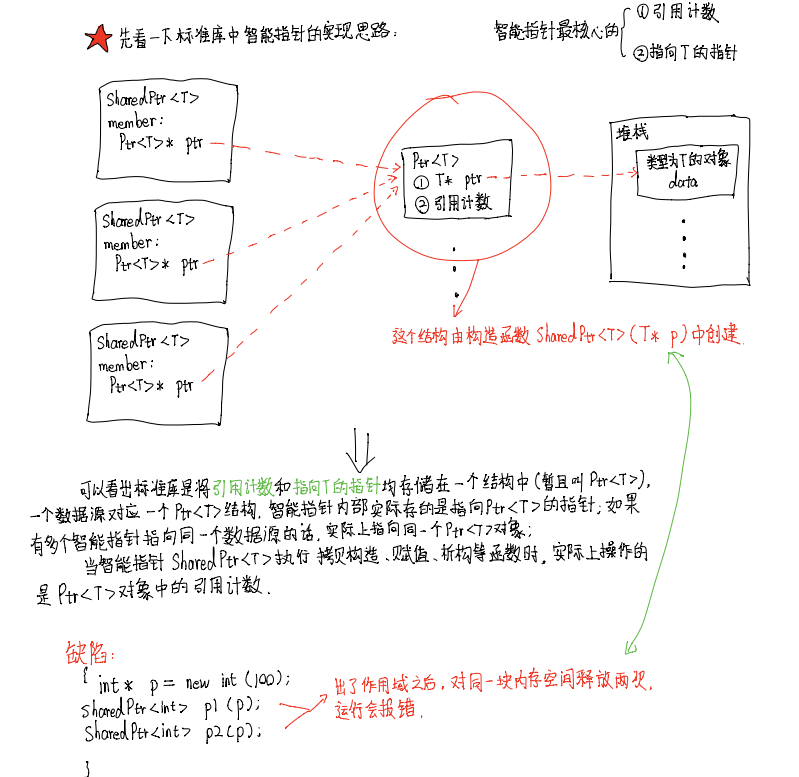 先看一下标准库中智能指针的实现思路:
智能指针最核心的
①引用计数
②指向T的指针
SharedPtr<T>
member:
Ptr<T>* ptr
SharedPtr<T>
member:
Ptr<T>* ptr
SharedPtr<T>
member:
Ptr<T>* ptr
Ptr<T>
① T* ptr
② 引用计数
堆栈
类型为T的对象
data
这个结构由构造函数 SharedPtr<T>(T* p)中创建.
可以看出标准库是将引用计数和指向T的指针均存储在一个结构中(暂且叫Ptr<T>),
一个数据源对应一个Ptr<T>结构. 智能指针内部实际存的是指向Ptr<T>的指针; 如果
有多个智能指针指向同一个数据源的话, 实际上指向同一个Ptr<T>对象;
当智能指针 SharedPtr<T>执行 拷贝构造、赋值、析构等函数时, 实际上操作的
是Ptr<T>对象中的引用计数.
缺陷:
{ int* p = new int(100);
SharedPtr<int> p1(p);
SharedPtr<int> p2(p);
}
出了作用域之后, 对同一块内存空间释放两次,
运行会报错.